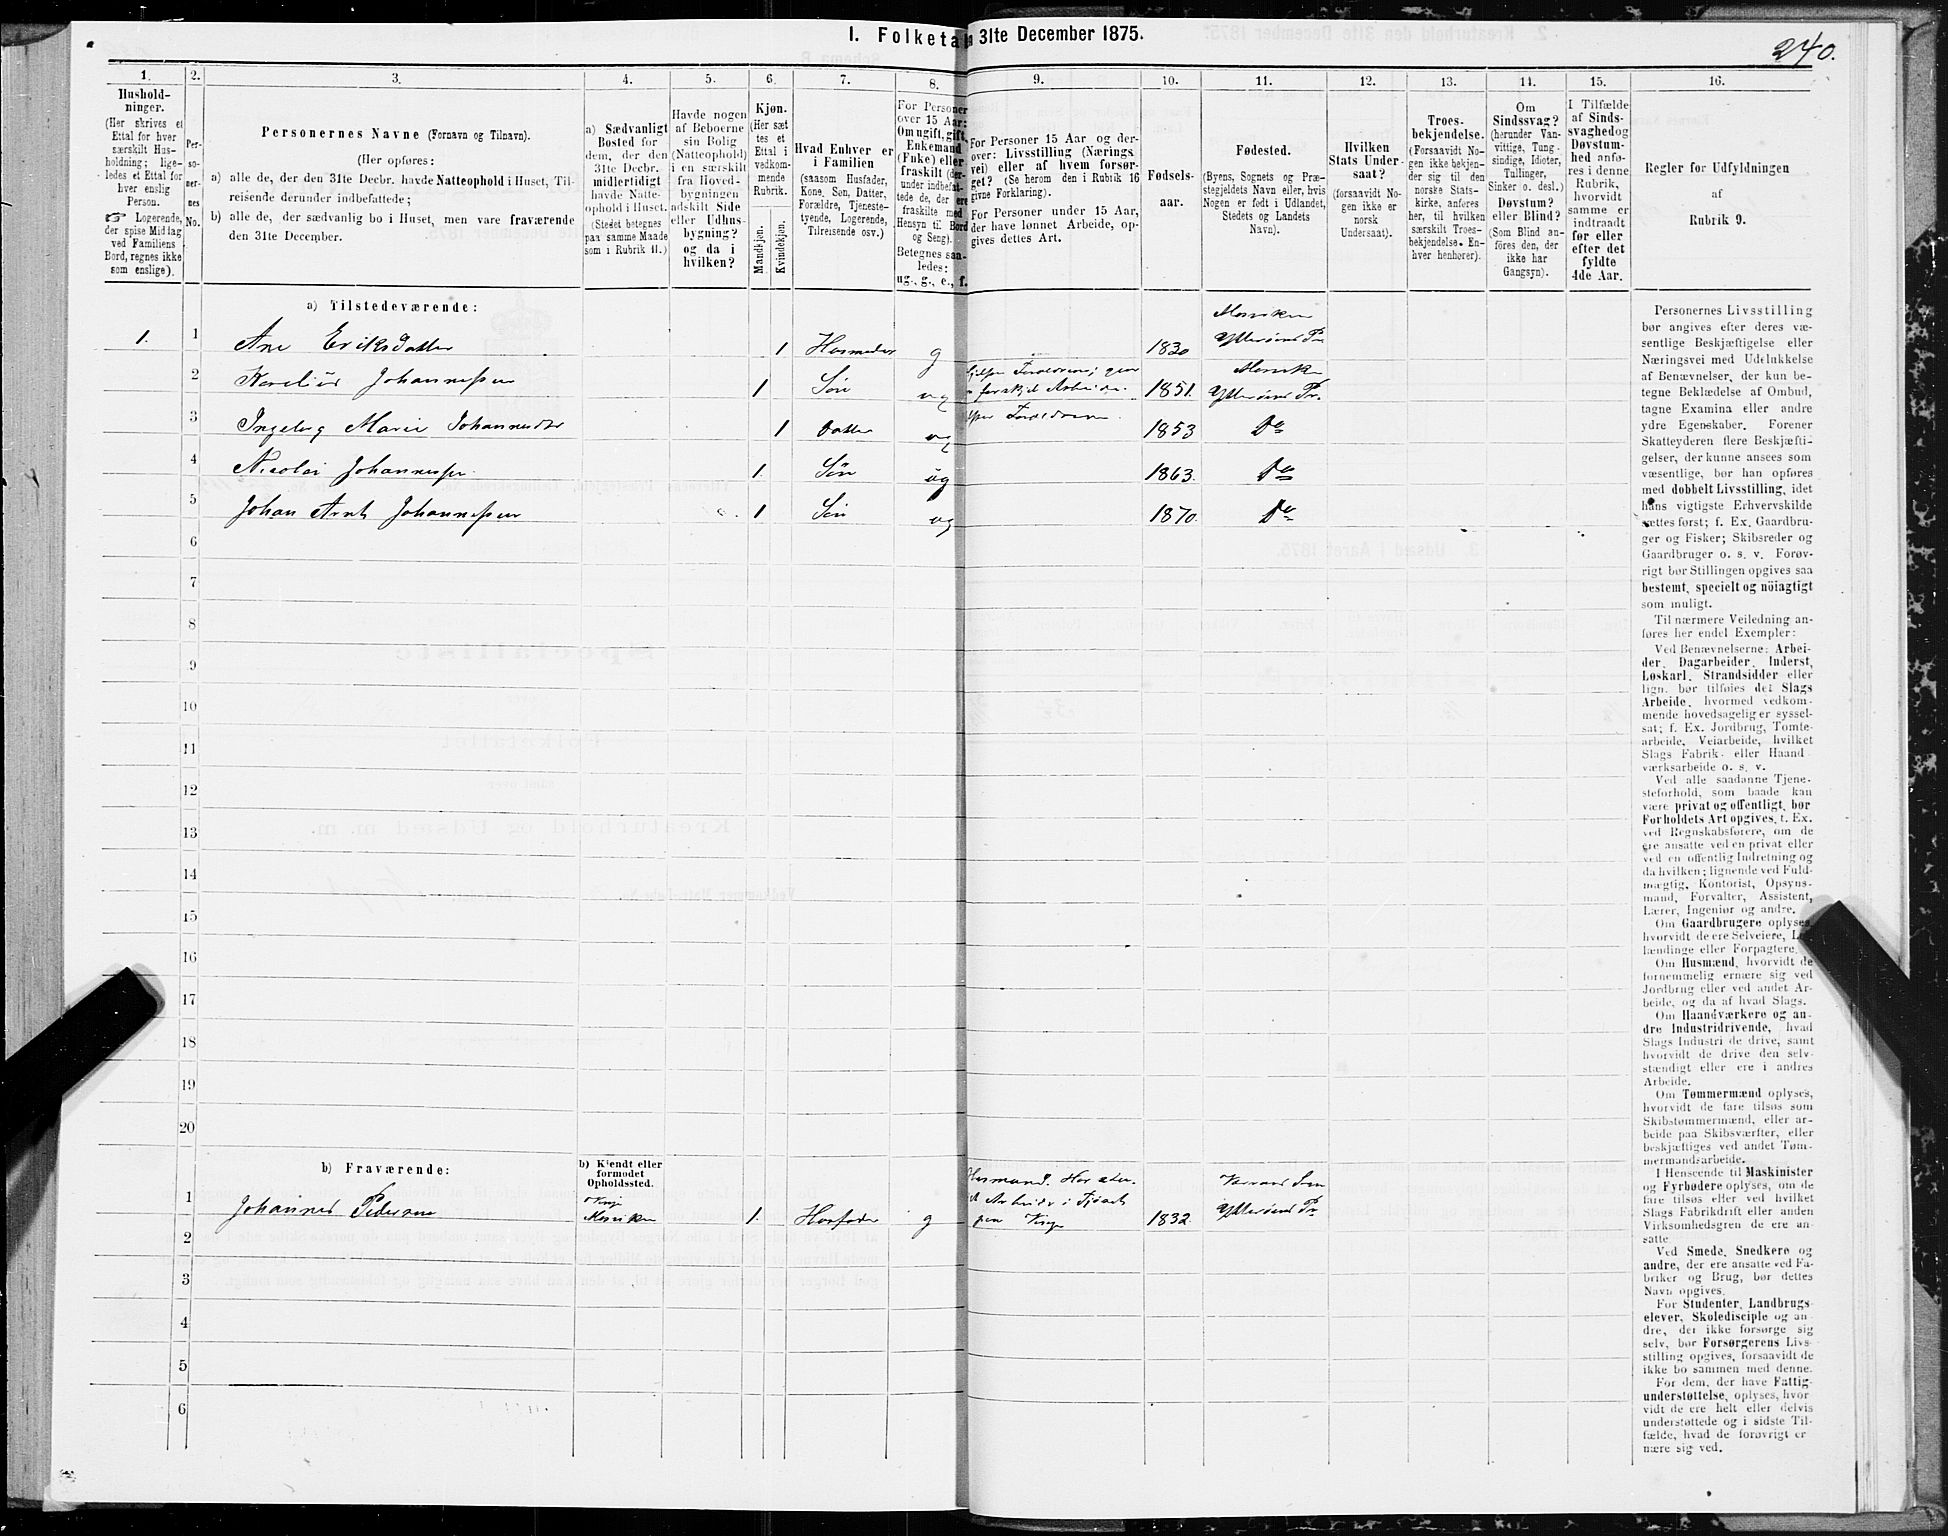 I. Folketa
n 31te December 1875.
240.
1.
2.
3.
4.
5.
6.
7.
8.
9.
10.
11.
12.
13.
14.
15.
16.
Hushold-
ninger.
(Her skrives et
Ettal for hver
særskilt Hus-
holdning; lige-
ledes et Ettal for
hver enslig
Person.
☞ Logerende,
der spise Middag
ved Familiens
Bord, regnes ikke
som enslige).
Per-
so-
ner-
nes
No.
Personernes Navne (Fornavn og Tilnavn).
(Her opføres:
a) alle de, der den 31te Decbr. havde Natteophold i Huset, Til-
reisende derunder indbefattede;
b) alle de, der sædvanlig bo i Huset, men vare fraværende
den 31te December.
a) Sædvanligt
Bosted for
dem, der den
31te Decbr.
midlertidigt
havde Natte-
ophold i Huset.
(Stedet betegnes
paa samme Maade
som i Rubrik 11.)
Havde nogen
af Beboerne
sin Bolig
(Natteophold)
i en særskilt
fra Hoved-
bygningen
adskilt Side
eller Udhus-
bygning?
og da i
hvilken?
Kjøn.
(Her sæt-
tes et
Ettal i
vedkom-
mende
Rubrik.
Mandkjøn.
Kvindekjøn.
Hvad Enhver er
i Familien
(saasom Husfader,
Kone, Søn, Datter,
Forældre, Tjeneste-
tyende, Logerende,
Tilreisende osv.)
For Personer
over 15 Aar:
Om ugift, gift,
Enkemand
(Enke) eller
fraskilt (der-
under indbefat-
tede de, der ere
fraskilte med
Hensyn til Bord
og Seng).
Betegnes saa-
ledes:
ug., g., e., f.
For Personer 15 Aar og der-
over: Livsstilling (Nærings
vei) eller af hvem forsør-
get? (Se herom den i Rubrik 16
givne Forklaring).
For Personer under 15 Aar,
der have lønnet Arbeide, op-
gives dettes Art.
Fødsels-
aar.
Fødested.
(Byens, Sognets og Præ-
stegjeldets Navn eller, hvis
Nogen er født i Udlandet,
Stedets og Landets
Navn).
Hvilken
Stats Under-
saat?
(forsaavidt No-
gen ikke er
norsk
Undersaat).
Troes-
bekjendelse.
(Forsaavidt No-
gen ikke bekjen-
der sig til den
norske Stats-
kirke, anføres
her, til hvilken
særskilt Troes-
bekjendelse. En-
hver henhører).
Om
Sindssvag?
(herunder Van-
vittige, Tung-
sindige, Idioter,
Tullinger,
Sinker o. desl.)
Døvstum?
eller Blind?
(Som Blind an-
føres den, der
ikke har
Gangsyn).
I Tilfælde
af Sinds-
svaghed og
Døvstum-
hed anfø-
res i denne
Rubrik,
hvorvidt
samme er
indtraadt
før eller
efter det
fyldte
4de Aar.
Regler for Udfyldningen
af
Rubrik 9.
a) Tilstedeværende:
1. 1 Ane Eriksdatter 1 Husmoder g 1830
Ytterøens Pr.
2 Johannessen 1 Søn ug 1851. Ytterøens Pr.
3 Ingeborg Marie Johannesdtr 1 Datter ug 1853 Do
4 Nicolai Johannessen 1. Søn ug 1863. Do
5 Johan Arnt Johannessen 1 Søn ug 1870. Do
6
7
8
9
10
11
12
13
14
15
16
17
18
19
20
b) Fraværende:
b) Kjendt eller
formodet
Opholdssted.
1 Johannes Pedersen 1. Husfader g 1832. Ytterøens Pr.
2
3
4
5
6
Personernes Livsstilling
bør angives efter deres væ-
sentlige Beskjæftigelse eller
Næringsvei med Udelukkelse
af Benævnelser, der kun be-
tegne Beklædelse af Ombud,
tagne Examina eller andre
ydre Egenskaber. Forener
Skatteyderen flere Beskjæfti-
gelser, der kunne ansees som
væsentlige, bør han opføres
med dobbelt Livsstilling, idet
hans vigtigste Erhvervskilde
sættes først; f. Ex. Gaardbru-
ger og Fisker; Skibsreder og
Gaardbruger o. s. v. Forøv-
rigt bør Stillingen opgives saa
bestemt, specielt og nöiagtigt
som muligt.
Til nærmere Veiledning an-
føres her endel Exempler:
Ved Benævnelserne: Arbei-
der, Dagarbeider, Inderst,
Løskarl, Strandsidder eller
lign. bør tilføies det Slags
Arbeide, hvormed vedkom-
mende hovedsagelig er syssel-
sat; f. Ex. Jordbrug, Tomte-
arbeide, Veiarbeide, hvilket
Slags Fabrik- eller Haand-
værksarbeide o. s. v.
Ved alle saadanne Tjene-
steforhold, som baade kan
være privat og offentligt, bør
Forholdets Art opgives, f. Ex.
ved Regnskabsførere, om de
ere ansatte ved en privat eller
ved en offentlig Indretning og
da hvilken; lignende ved Fuld-
mægtig, Kontorist, Opsyns-
mand, Forvalter, Assistent,
Lærer, Ingeniør og andre.
Om Gaardbrugere oplyses,
hvorvidt de ere Selveiere, Lei-
lændinge eller Forpagtere.
Om Husmænd, hvorvidt de
fornemmelig ernære sig ved
Jordbrug eller ved andet Ar-
beide, og da af hvad Slags.
Om Haandværkere og an-
dre Industridrivende, hvad
Slags Industri de drive, samt
hvorvidt de drive den selv-
stændigt eller ere i andres
Arbeide.
Om Tømmermænd oplyses,
hvorvidt de fare tilsøs som
Skibstømmermænd, eller ar-
beide paa Skibsværfter, eller
beskjæftiges ved andet Tøm-
mermandsarbeide.
I Henseende til Maskinister
og Fyrbødere oplyses, om de
fare tilsøs eller ved hvilket
Slags Fabrikdrift eller anden
Virksomhedsgren de ere an-
satte.
Ved Smede, Snedkere og
andre, der ere ansatte ved Fa-
briker og Brug, bør dettes
Navn opgives.
For Studenter, Landbrugs-
elever, Skoledisciple og an-
dre, der ikke forsørge sig
selv, bør Forsørgerens Livs-
stilling opgives, forsaavidt de
ikke bo sammen med denne.
For dem, der have Fattig-
understøttelse, oplyses, hvor-
vidt de ere helt eller delvis
understøttede og i sidste Til-
fælde, hvad de forøvrigt er-
nære sig ved.